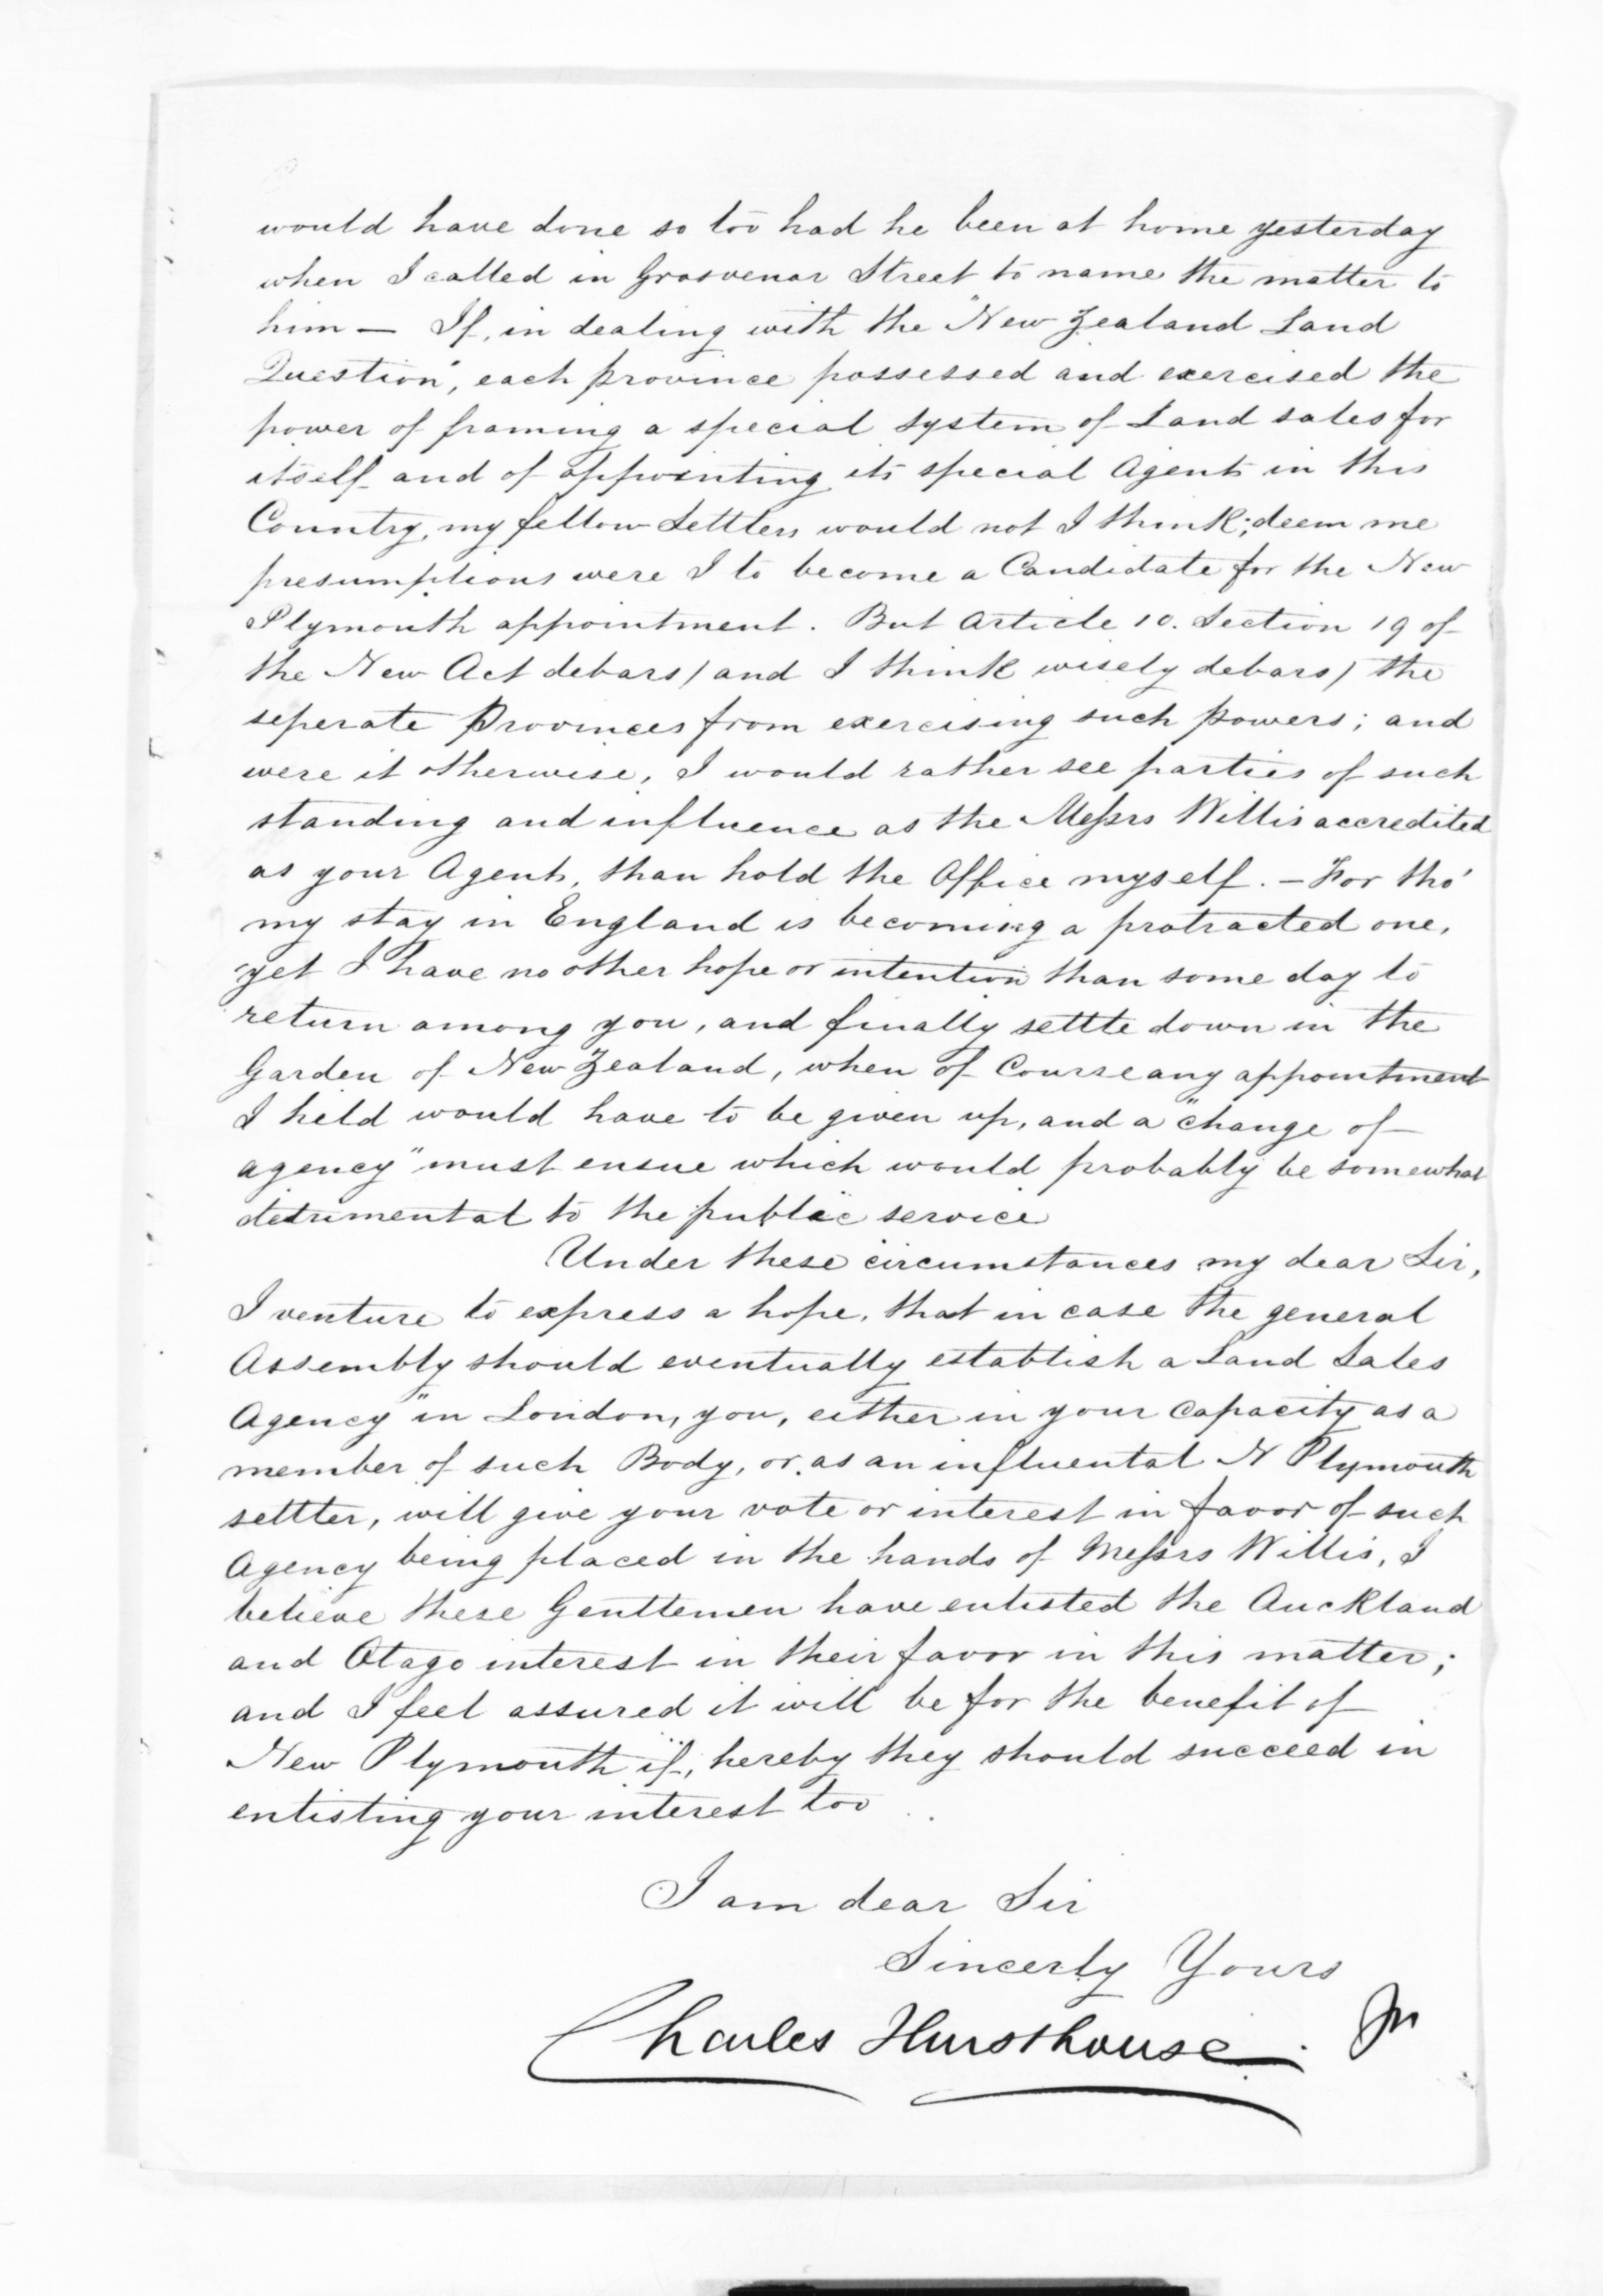 would have done so too had he been at home yesterday
when I called in Grosvenor Street to name the matter to
him — If, in dealing with the "New Zealand Land
Question", each province possessed and exercised the
power of framing a special system of Land sales for
itself and of appointing its special Agents in this
Country, my fellow Settlers would not I think, deem me
presumptious were I to become a Candidate for the New
Plymouth appointment. But Article 10. Section 19 of
the New Act debars / and I think wisely debars / the
seperate Provinces from exercising such powers; and
were it otherwise, I would rather see parties of such
standing and influence as the Messrs Willis accredited
as your Agents, than hold the Office myself. — For tho'
my stay in England is becoming a protracted one,
yet I have no other hope or intention than some day to
return among you, and finally settle down in the
Garden of New Zealand, when of Course any appointment
I held would have to be given up, and a "change of
agency" must ensue which would probably be somewhat
detrimental to the public service
Under these circumstances my dear Sir,
I venture to express a hope, that in case the general
Assembly should eventually establish a Land Sales
Agency" in London, you, either in your Capacity as a
member of such Body, or as an influental N Plymouth
settler, will give your vote or interest in favor of such
Agency being placed in the hands of Messrs Willis, I
believe these Gentlemen have enlisted the Auckland
and Otago interest in their favor in this matter;
and I feel assured it will be for the benefit of
New Plymouth if, hereby they should succeed in
enlisting your interest too
I am dear Sir
Sincerly Yours
Charles Hursthouse. Jn